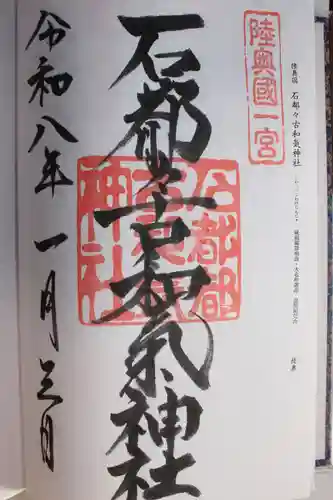 陸奥國一宮
陸奥国 石都々古和氣神社
石都々古和氣神社
石都都古和氣神社
令和八年 一月三日